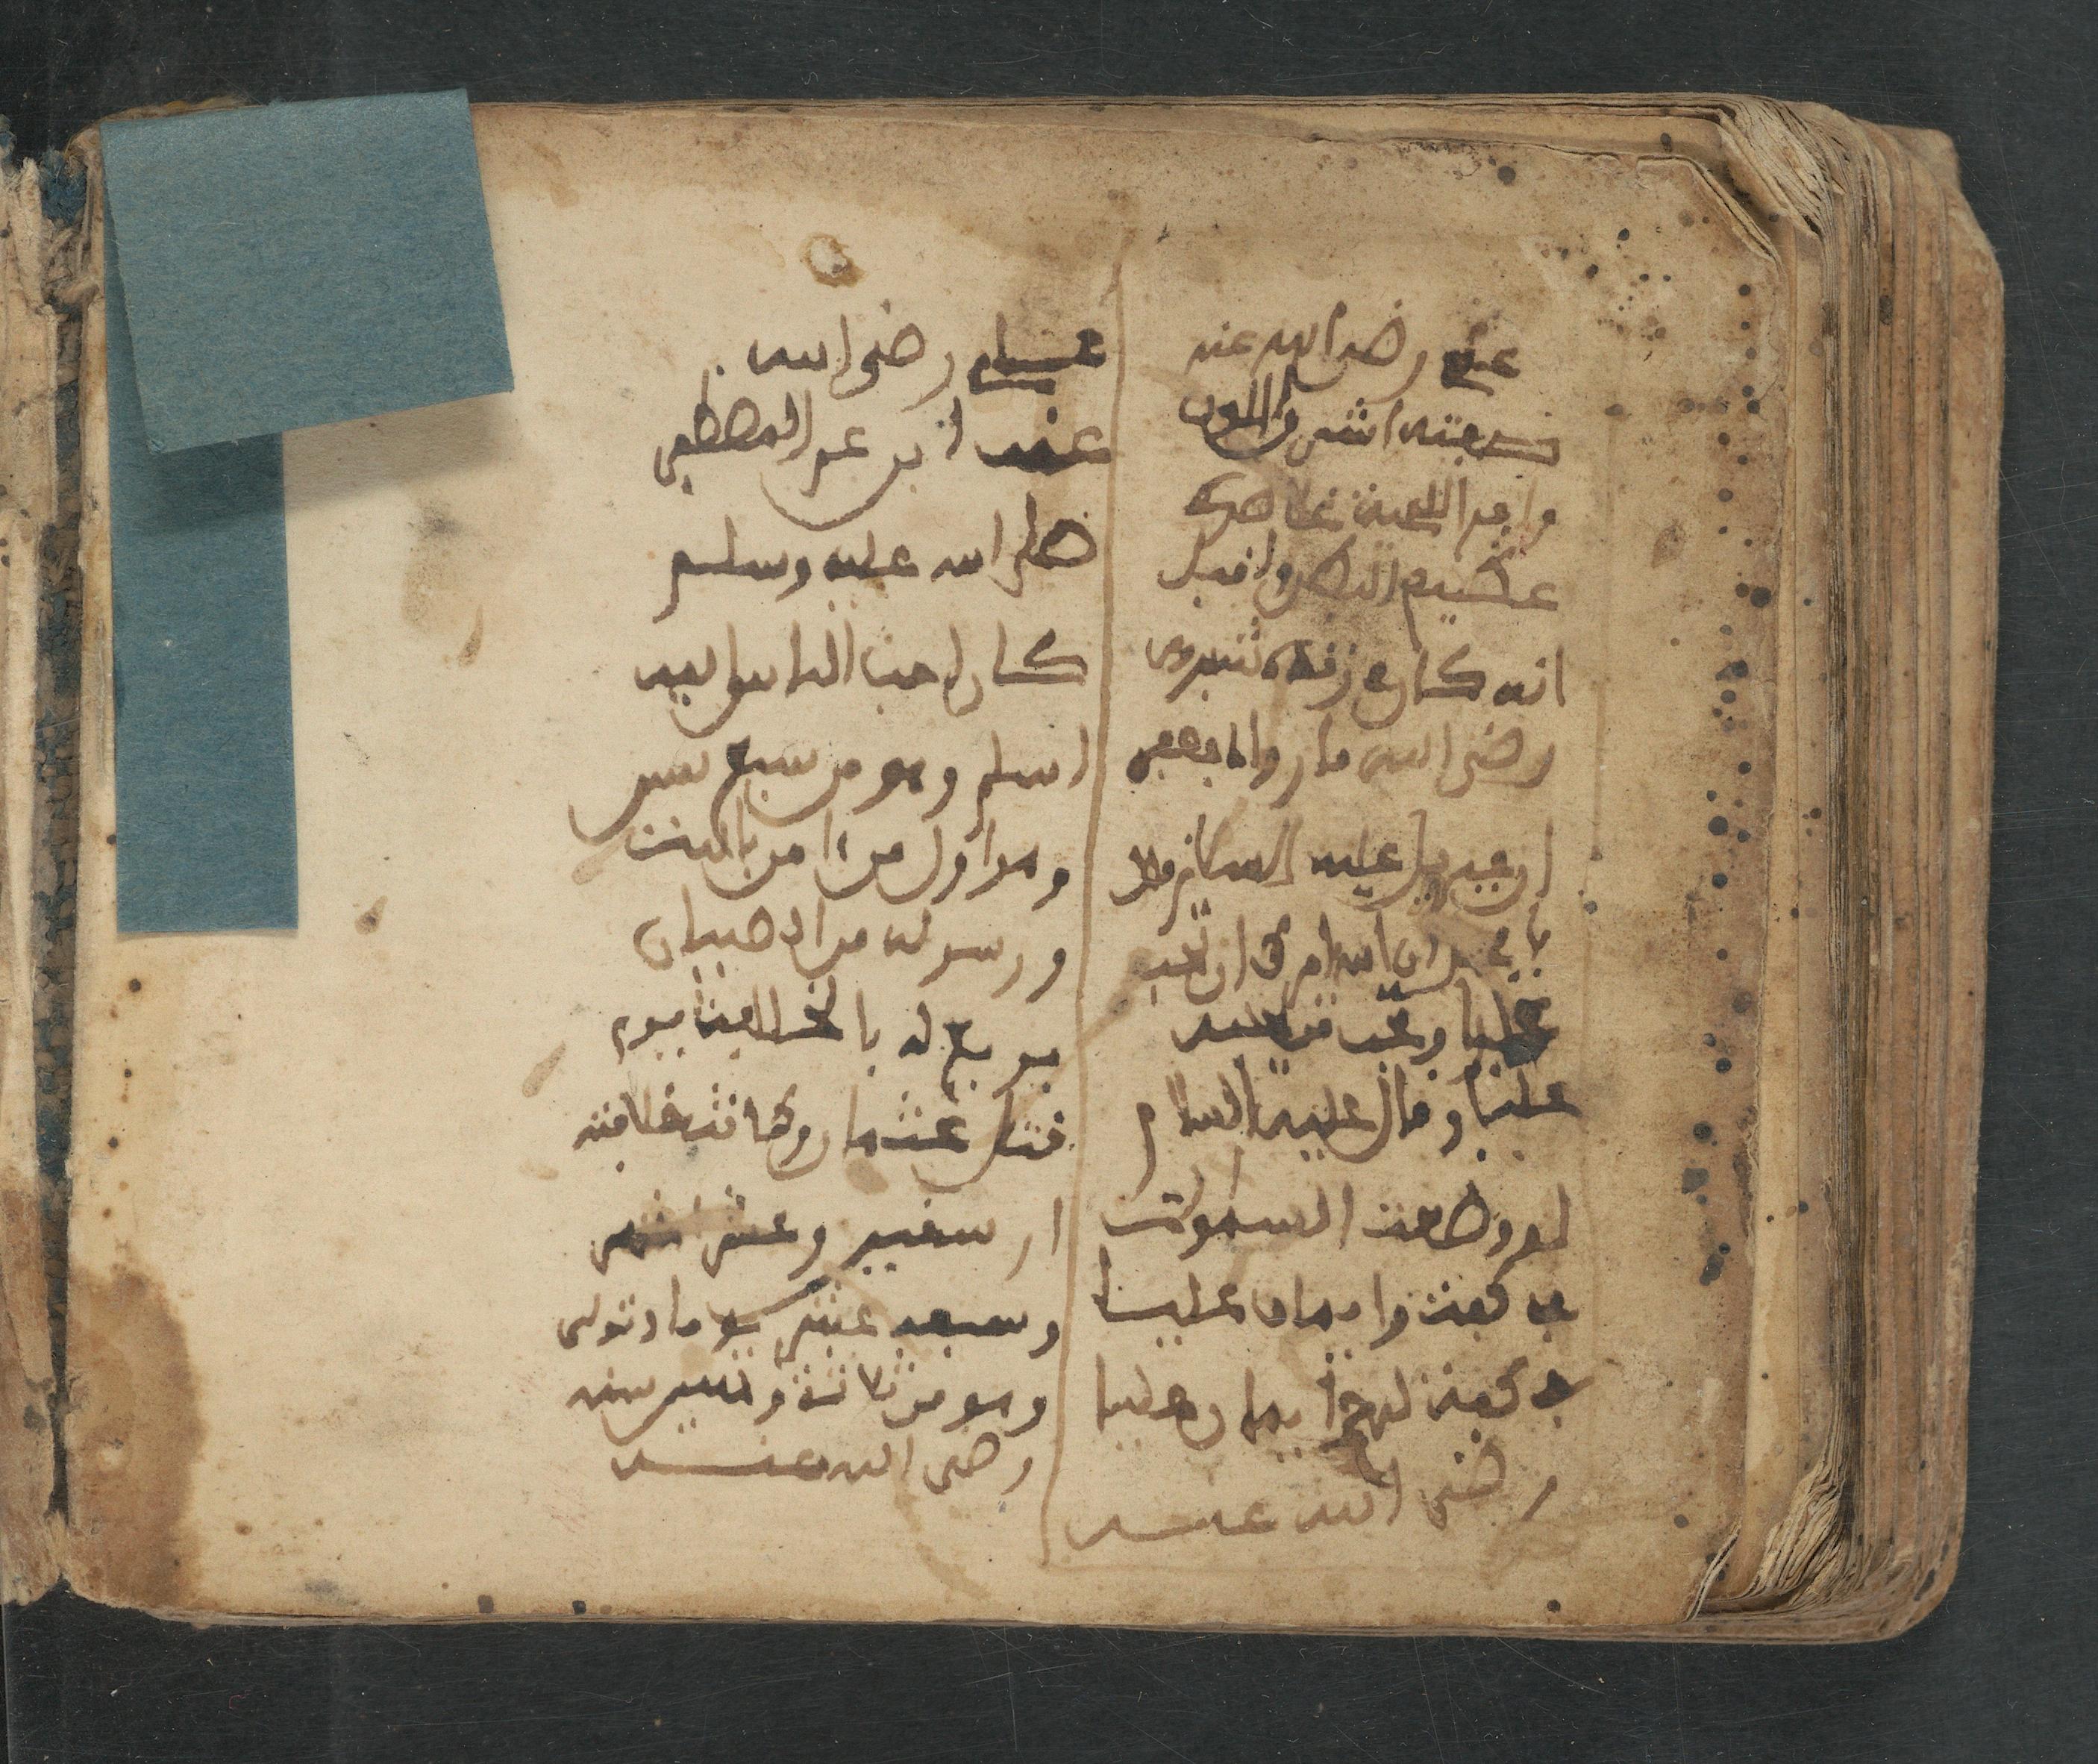 علي رضي الله عنه
صفته اشعر اللون
وافر اللحية
عظيم البطن وافيل
انه كان
رضي الله ما روا بعض
ان جبريل عليه السلام نزل
يا محمد ان الله امرك ان تحب
عليا وتحب من يحب
عليا وقال عليه السلام
لو وضعت السموات
في كفة وايمان عليا
في كفة لرجح ايمان عليا
رضي الله عنه
علي رضي الله
عنه ابن عم المصطفى
صلى الله عليه وسلم
كان احب الناس اليه
اسلم وهو من سبع سنين
وهو اول من امن بالله
ورسوله من الصبيان
بويع له بالخلافة يوم
قتل عثمان وكانت خلافته
اربع سنين وعشر اشهر
وسبعة عشر يوما وتولى
وهو من ثلاثة وستين سنة
رضي الله عنه